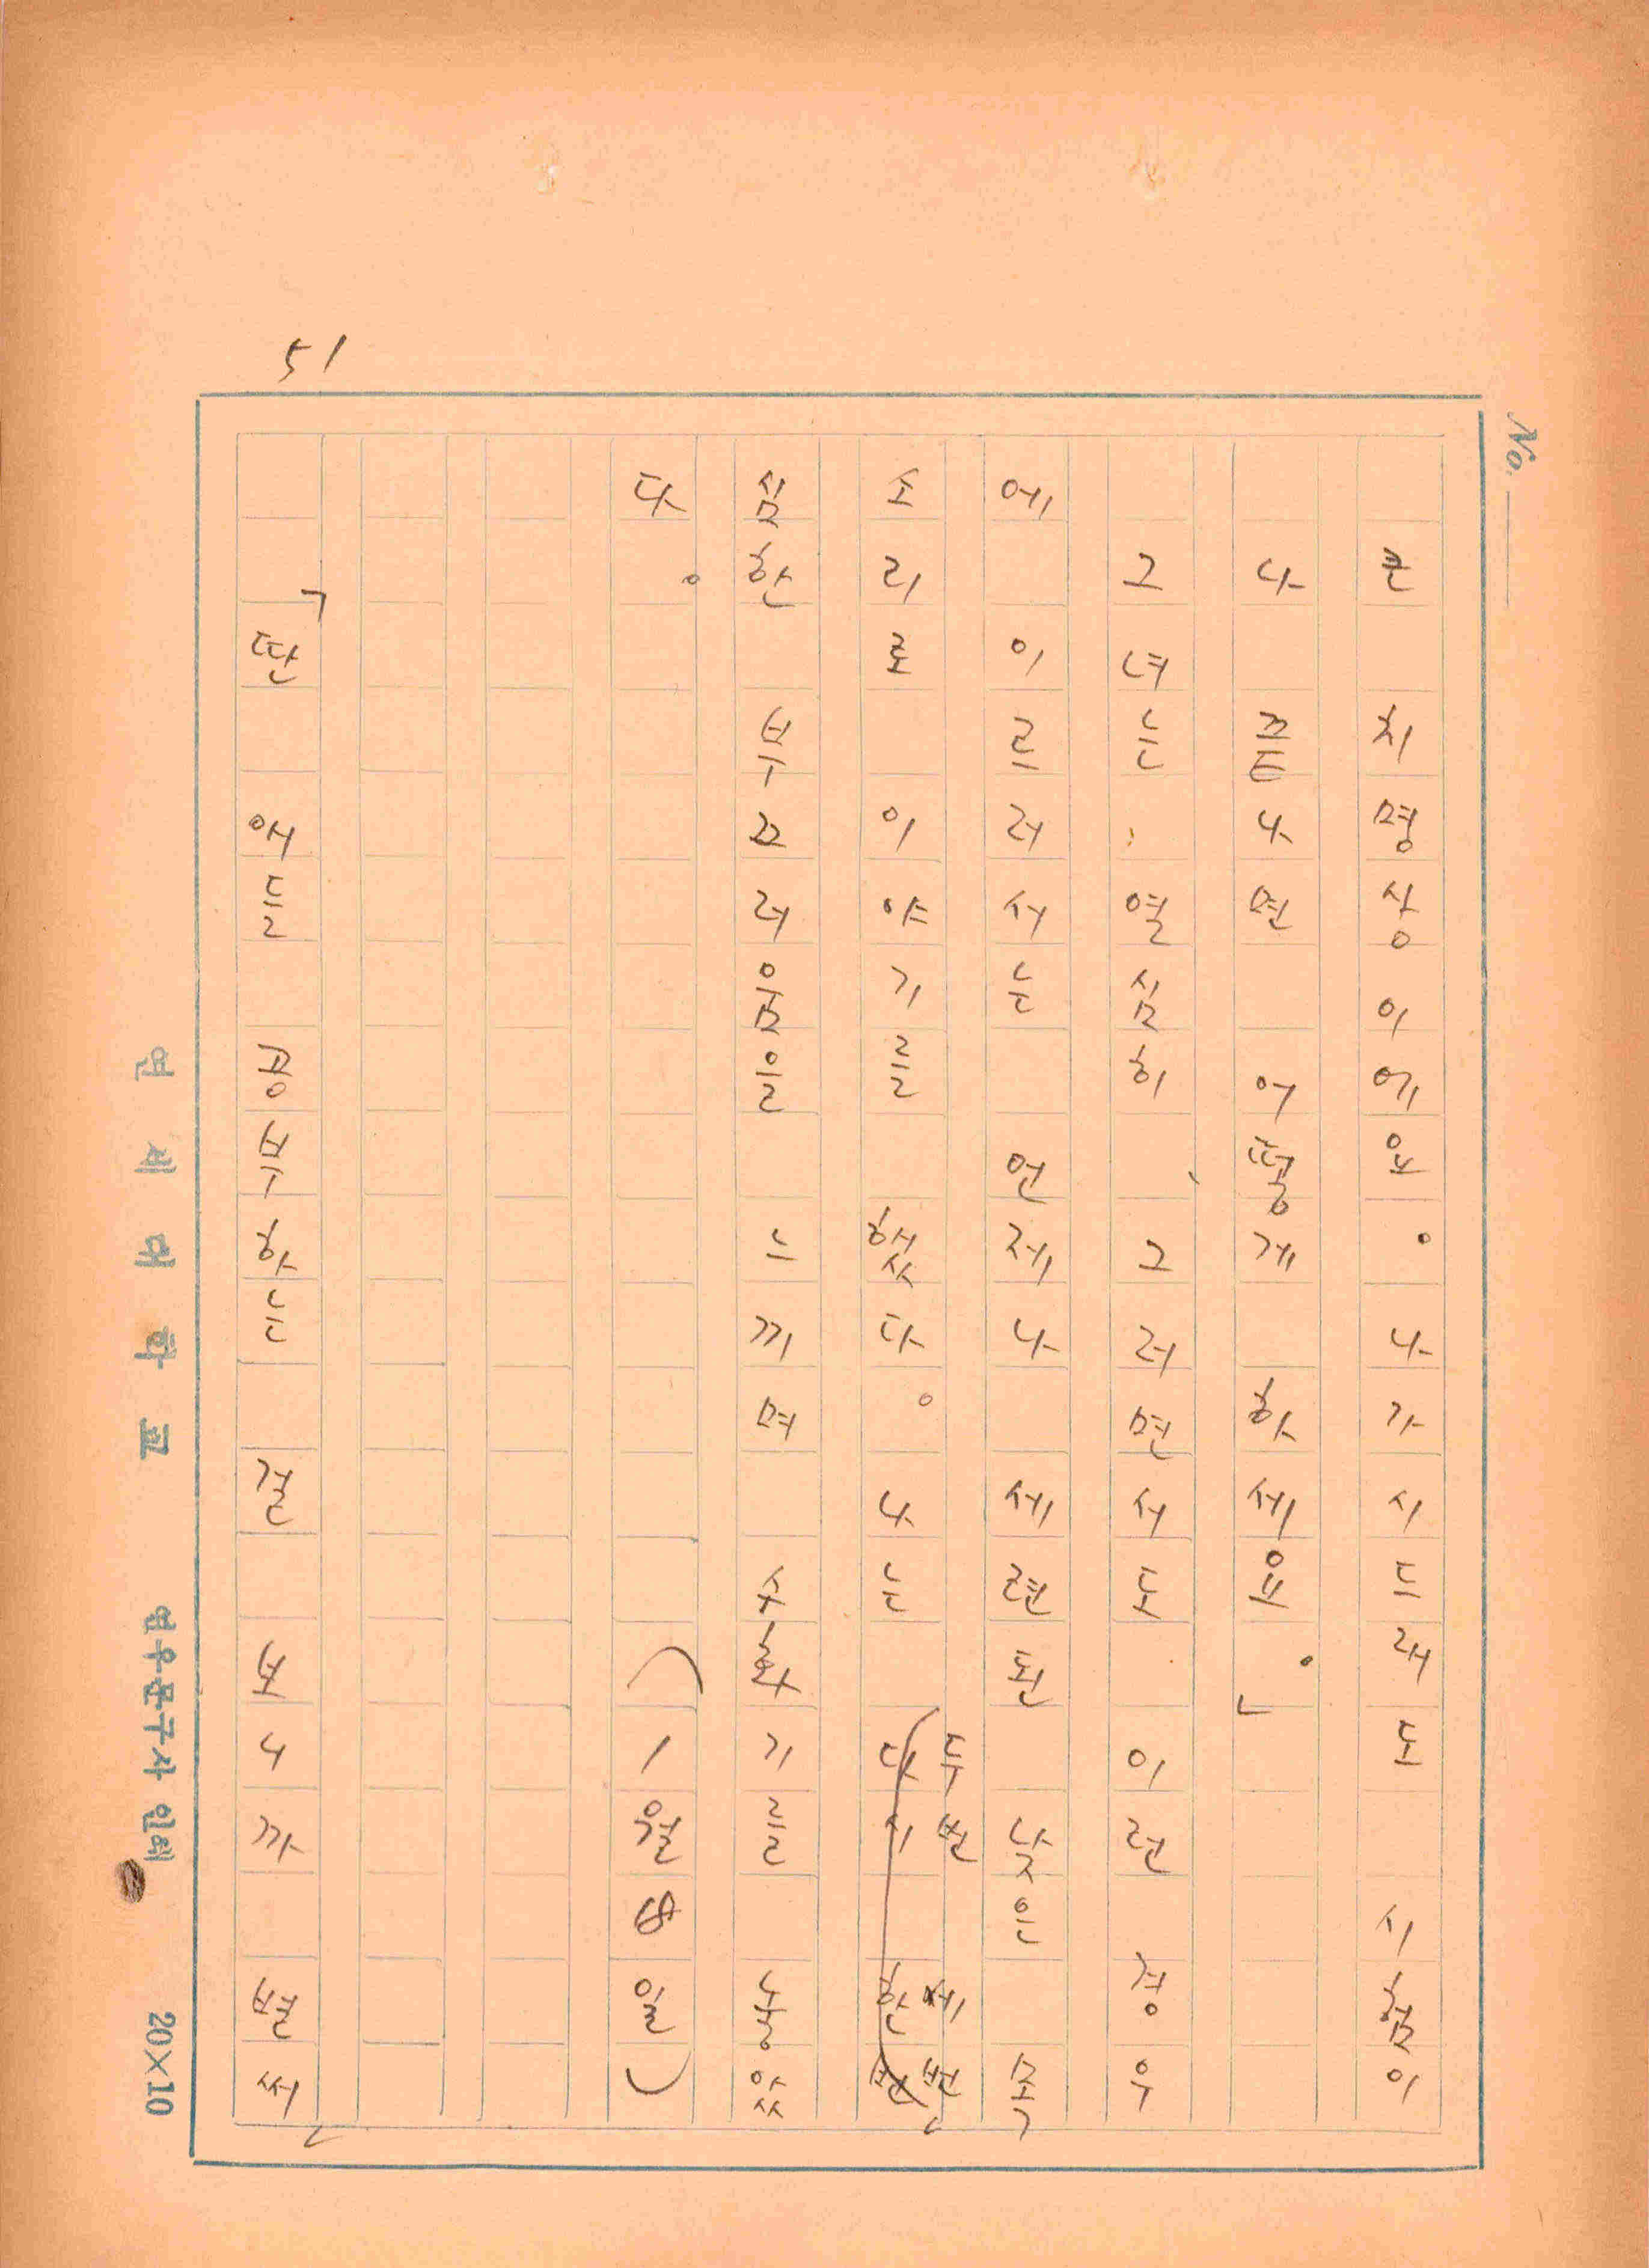 No.
51
큰 치명상이에요. 나가시드래도 시험이
나 끝나면 어떻게 하세요.」
그녀는 열심히, 그러면서도 이런 경우
에 이르러서는 언제나 세련된 낮은 목
두번 세번
소리로 이야기를 했다. 나는 다시 한번
심한 부끄러움을 느끼며 수화기를 놓았
다. (1월 8일)
「딴 애들 공부하는 걸 보니까 벌써
연세대학교 연우문구사 인쇄 20×10